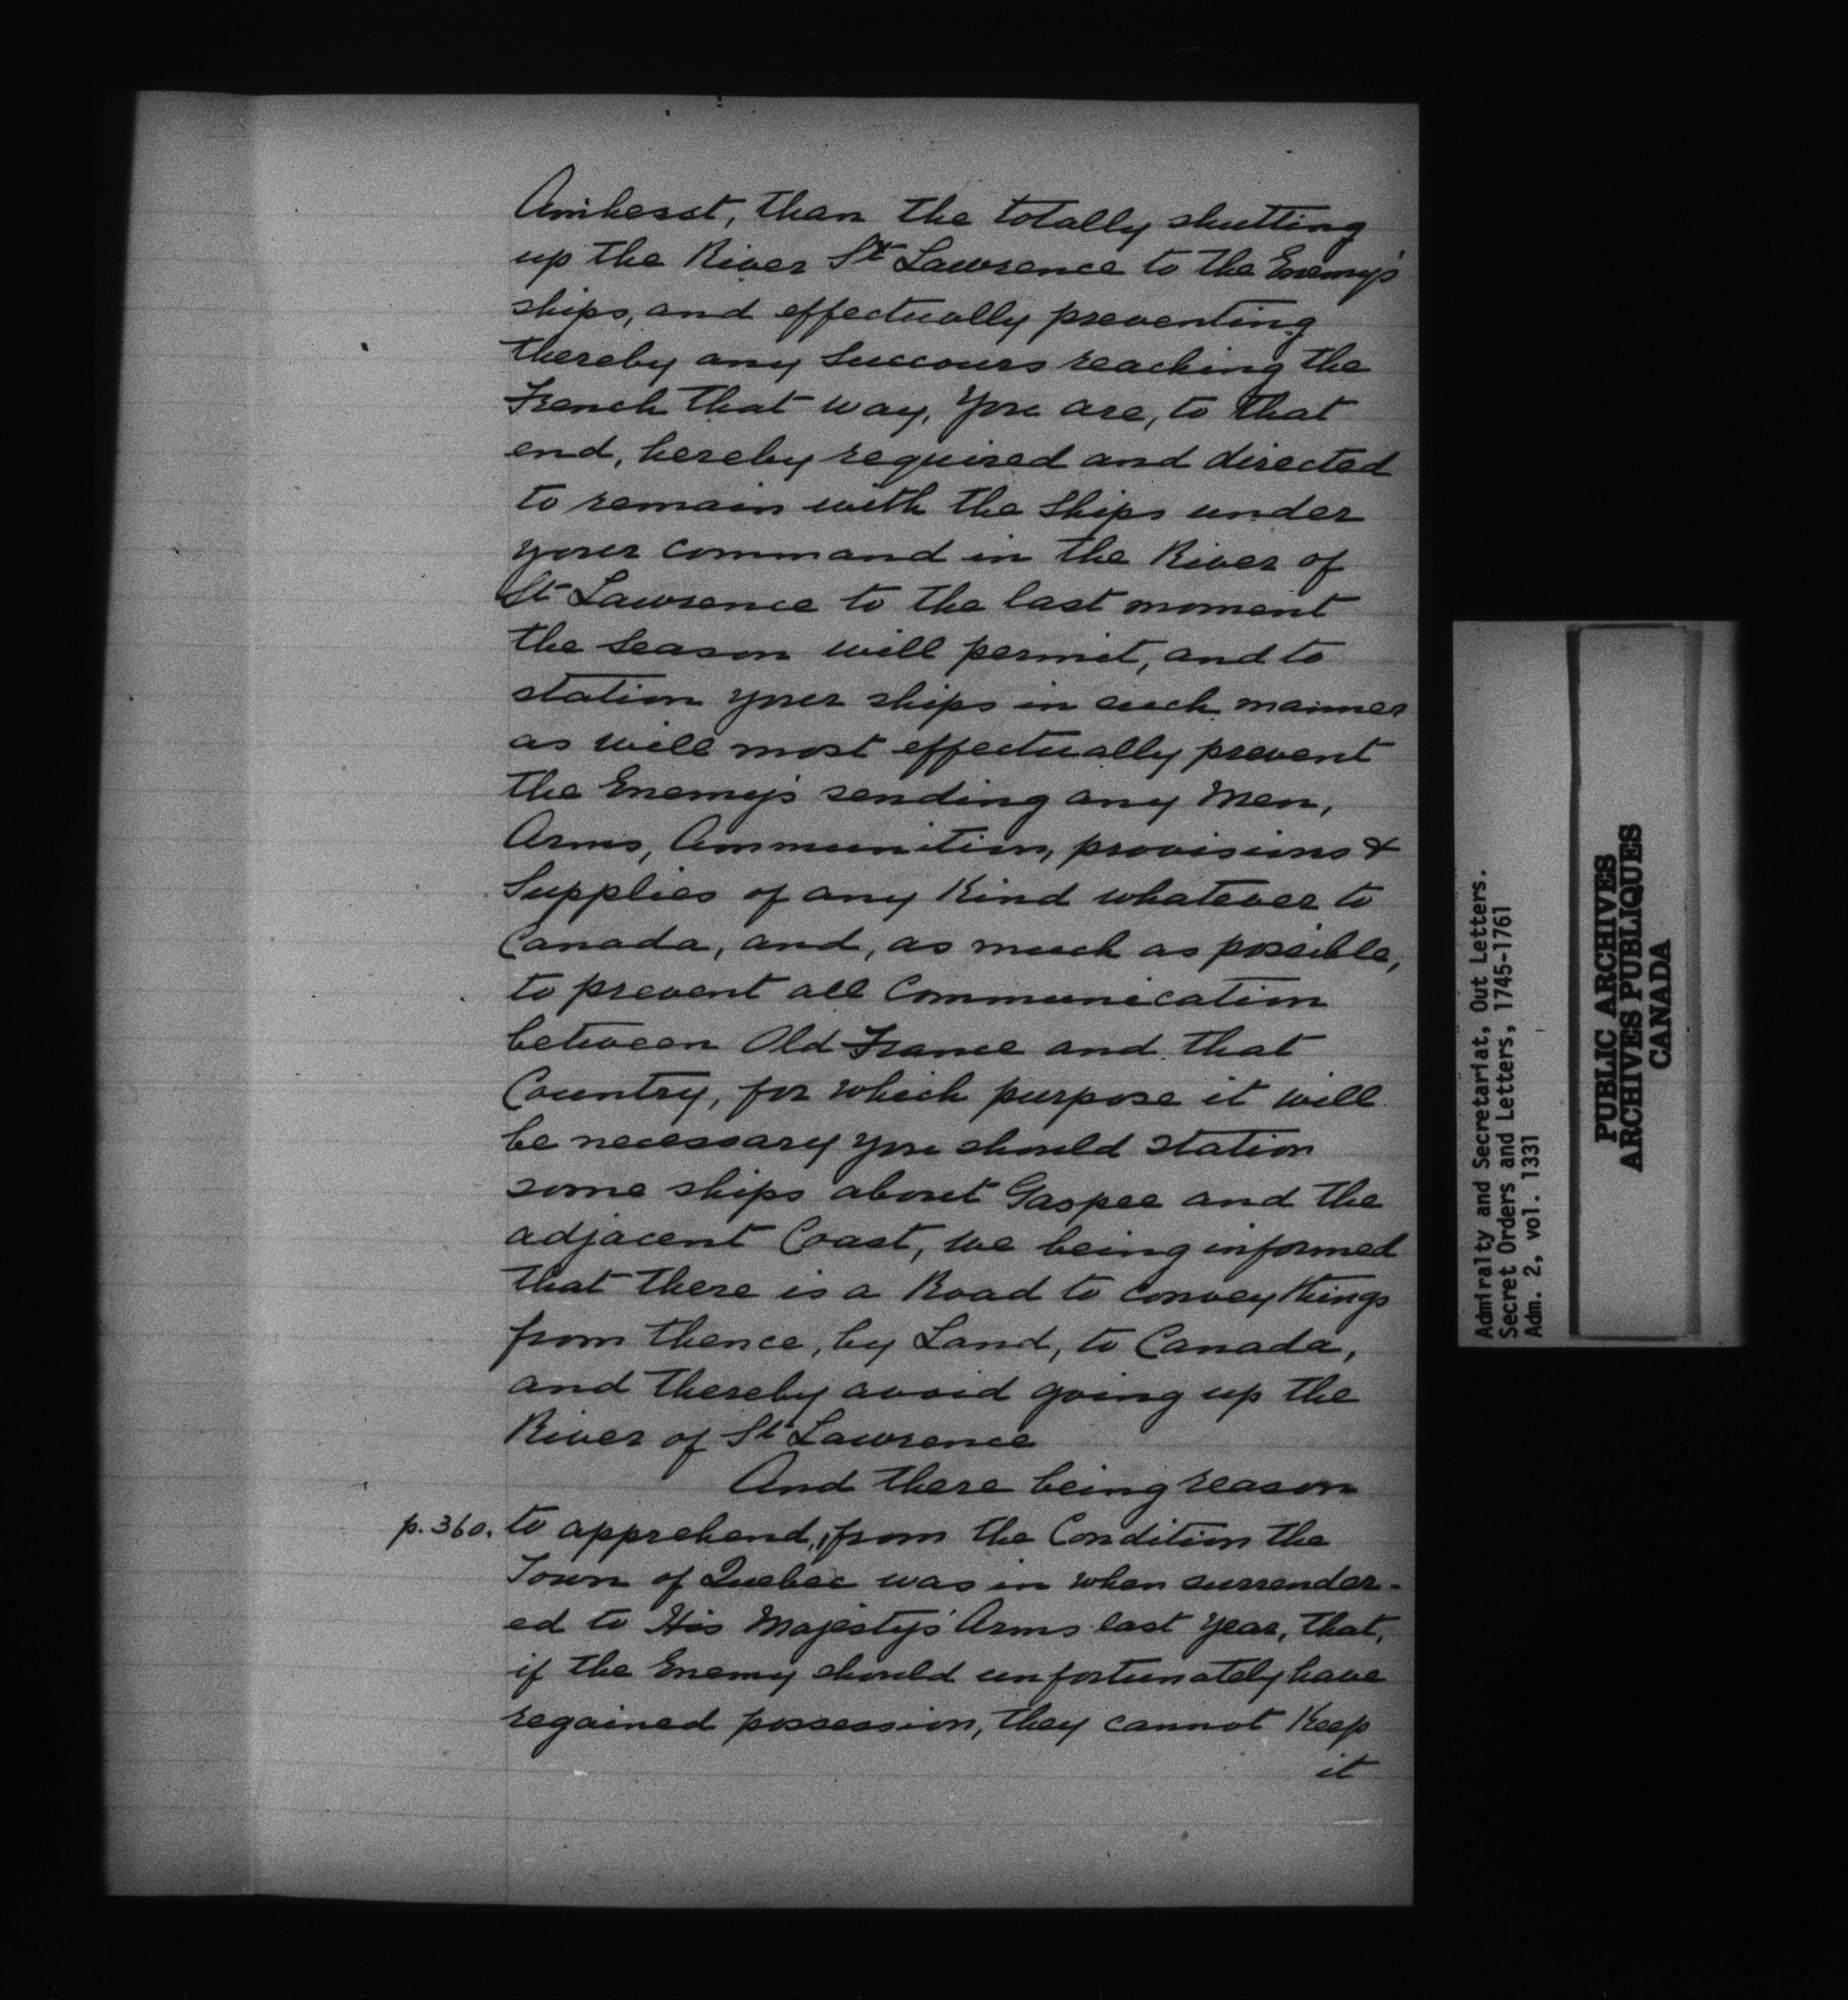 Amherst, than the totally shutting
up the River St Lawrence to the Enemy's
ships, and effectually preventing
thereby any Succours reaching the
French that way, You are, to that
end, hereby required and directed
to remain with the Ships under
your command in the River of
St Lawrence to the last moment
the Season will permit, and to
station your ships in such manner
as will most effectually prevent
the Enemy's sending any Men,
Arms, Ammunition, provisions &
Supplies of any Kind whatever to
Canada, and, as much as possible,
to prevent all Communication
between Old France and that
Country, for which purpose it will
be necessary you should station
some ships about Gaspee and the
adjacent Coast, we being informed
that there is a Road to convey things
from thence, by Land, to Canada,
and thereby avoid going up the
River of St Lawrence
And there being reason
p. 360. to apprehend, from the Condition the
Town of Quebec was in when surrender-
ed to His Majesty's Arms last year, that,
if the Enemy should unfortunately have
regained possession, they cannot Keep
it
Admiralty and Secretariat, Out Letters.
Secret Orders and Letters, 1745-1761
Adm. 2, vol. 1331
PUBLIC ARCHIVES
ARCHIVES PUBLIQUES
CANADA